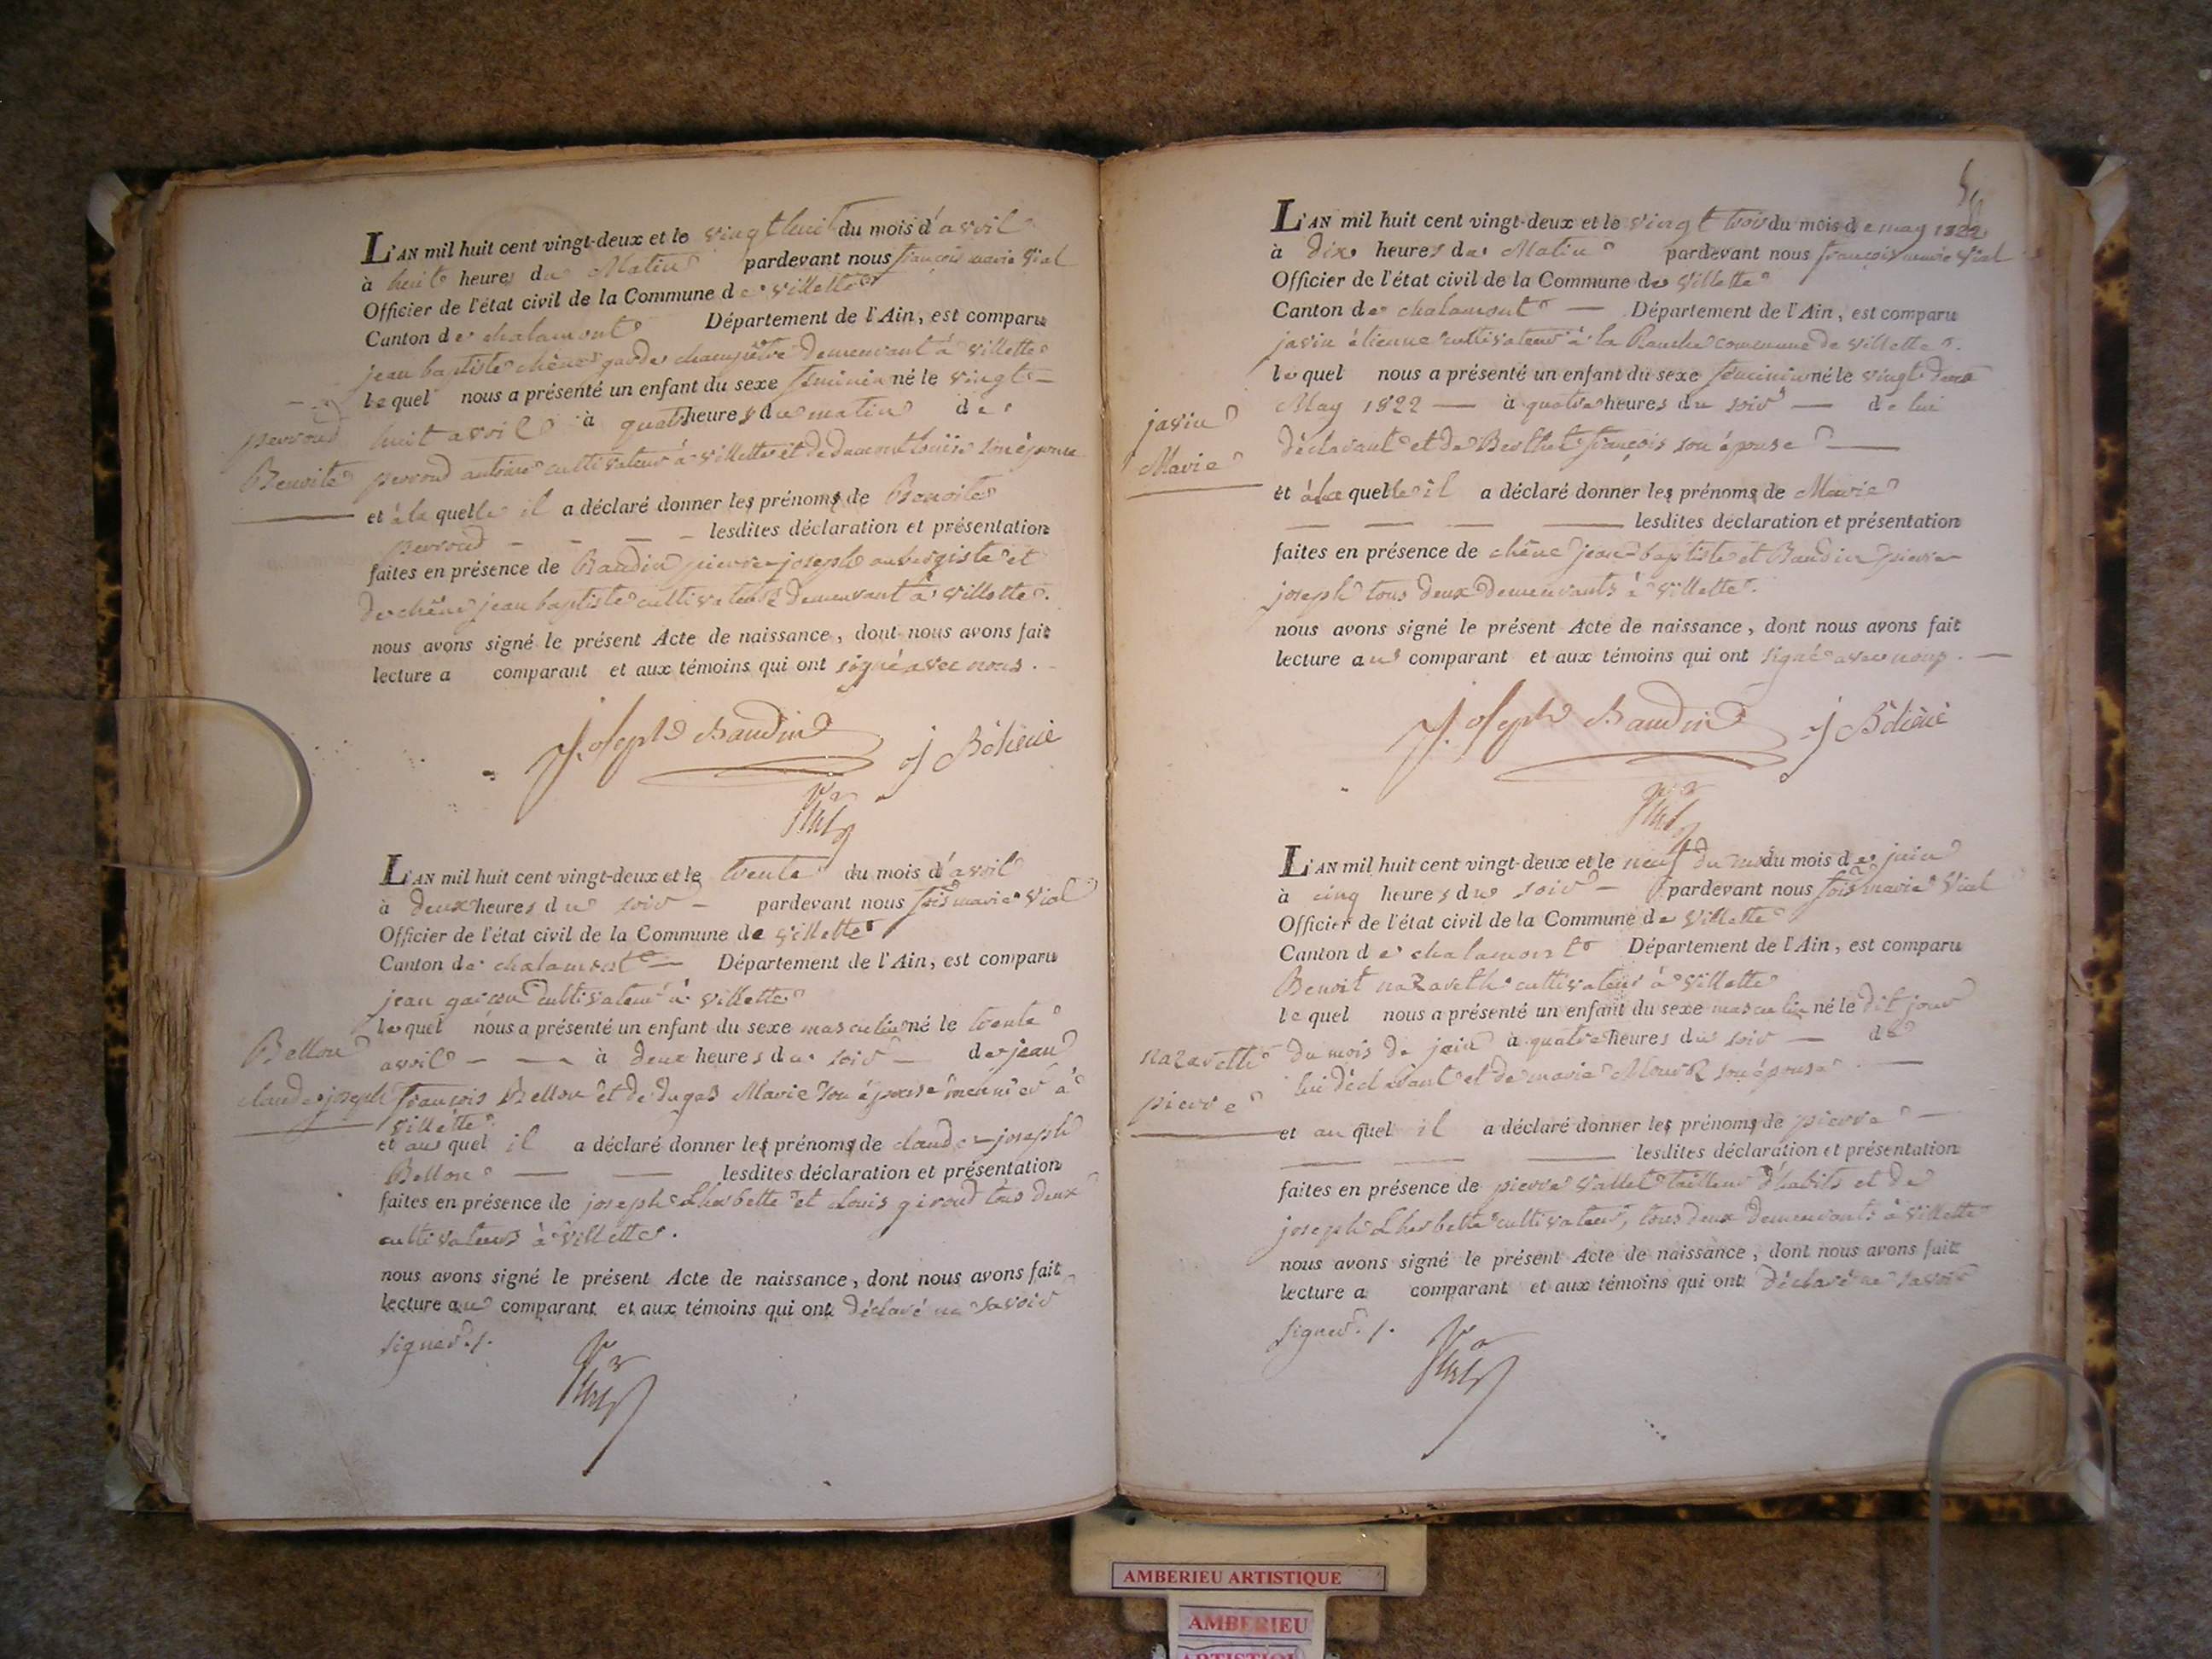 L'AN mil huit cent vingt-deux et le vingt huit du mois d'avril
à huit heures du Matin pardevant nous françois marie Vial
Officier de l'état civil de la Commune de villette
Canton de chalamont Département de l'Ain, est comparu
jean baptiste chêne garde champêtre demeurant à villette
lequel nous a présenté un enfant du sexe féminin né le vingt
huit avril à quatre heures du matin de
perroud
Benoite
perroud antoine cultivateur à villette et de louise son épouse
et à la quelle il a déclaré donner les prénoms de Benoite
perroud lesdites déclaration et présentation
faites en présence de Baudin pierre joseph aubergiste et
de chêne jean baptiste cultivateur demeurant à villette.
nous avons signé le présent Acte de naissance, dont nous avons fait
lecture a comparant et aux témoins qui ont signé avec nous.
Joseph Baudin
L'AN mil huit cent vingt-deux et le trente du mois d'avril
à deux heures du soir pardevant nous fois marie Vial
Officier de l'état civil de la Commune de villette
Canton de chalamont Département de l'Ain, est comparu
jean cultivateur à villette
lequel nous a présenté un enfant du sexe masculin né le trente
avril à deux heures du soir de jean
Bellon
claude joseph
françois Bellon et de dugas Marie son épouse à
villette
et au quel il a déclaré donner les prénoms de claude joseph
Bellon lesdites déclaration et présentation
faites en présence de joseph Lherbette et Louis giroud tous deux
cultivateurs à villette.
nous avons signé le présent Acte de naissance, dont nous avons fait
lecture au comparant et aux témoins qui ont déclaré ne savoir
signer./.
L'AN mil huit cent vingt-deux et le vingt trois du mois de may 1822
à dix heures du Matin pardevant nous françois marie Vial
Officier de l'état civil de la Commune de villette
Canton de chalamont Département de l'Ain, est comparu
javin étienne cultivateur à la commune de villette.
lequel nous a présenté un enfant du sexe féminin né le vingt deux
May 1822 à quatre heures du soir de lui
javin
Marie
déclarant et de Berthet françois son épouse
et à la quelle il a déclaré donner les prénoms de Marie
lesdites déclaration et présentation
faites en présence de chêne jean baptiste et Baudin pierre
joseph tous deux demeurants à villette.
nous avons signé le présent Acte de naissance, dont nous avons fait
lecture au comparant et aux témoins qui ont signé avec nous.
Joseph Baudin
L'AN mil huit cent vingt-deux et le neuf du mois de juin
à cinq heures du soir pardevant nous fois marie Vial
Officier de l'état civil de la Commune de villette
Canton de chalamont Département de l'Ain, est comparu
Benoit nazareth cultivateur à villette
lequel nous a présenté un enfant du sexe masculin né le dit jour
du mois de juin à quatre heures du soir de
nazareth
pierre
lui déclarant et de marie son épouse
et au quel il a déclaré donner les prénoms de pierre
lesdites déclaration et présentation
faites en présence de pierre vallet tailleur d'habits et de
joseph Lherbette cultivateur, tous deux demeurants à villette
nous avons signé le présent Acte de naissance, dont nous avons fait
lecture a comparant et aux témoins qui ont déclaré ne savoir
signer./.
AMBERIEU ARTISTIQUE
AMBERIEU
ARTISTIQUE